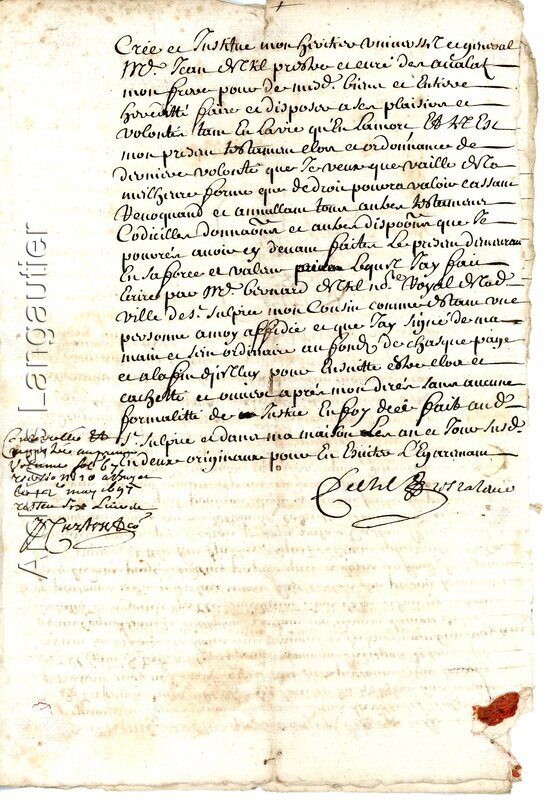 Crée et Institue mon heritier universel et general
Mr. Jean prestre et curé des
mon frere pour de mesd. biens et Entiere
heredité faire et disposer a son plaisir et
volonté tant En la vie qu'En la mort Et
mon presant testament clos et ordonnance de
derniere volonté que Je veux que vaille de la
meilheure forme que de droit pourra valoir cassant
revoquand et annullant tous autres testamens
Codicilles donnaõns et autres dispoõns que Je
pourrés avoir cy devant faites Le presant demeurant
En sa force et valeur Lequel J'ay fait
Ecrire par Mr. bernard nore Royal de lad.
ville de St. sulpice mon Cousin comme estant une
personne a moy affidée et que J'ay signé de ma
main et sein ordinaire au fonds de chasque page
et a la fin d'icelluy pour Ensuitte estre clos et
cachetté et ouvert aprés mon dicés sans aucune
formalitté de Justice En foy de cé fait aud.
St. sulpice et dans ma maison Les an et Jour susd.
En deux originaux pour En Eviter L'Egaremant
Controllé et
volume fol 67
may 1697